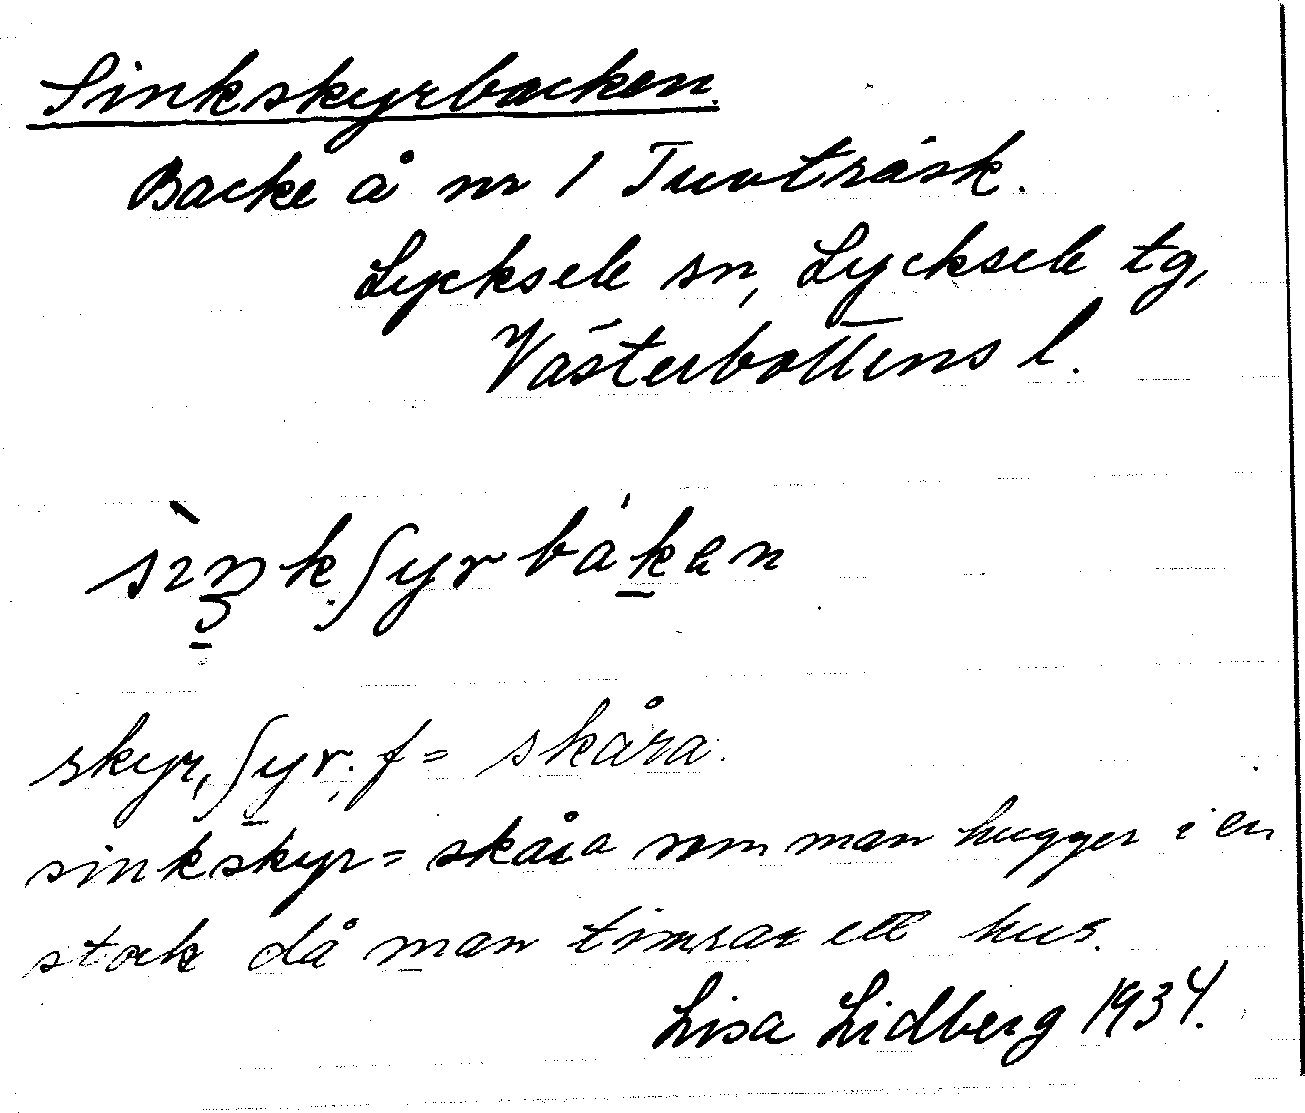 Sinkskyrbacken.
Backe å nr 1 Tuvträsk.
Lycksele sn, Lycksele tg,
Västerbottens l.
sìŋkʃyrbákɐn
skyr, ʃyr, f = skåra.
sinkskyr = skåra som man hugger i en
stock då man timrar ett hus.
Lisa Lidberg 1934.